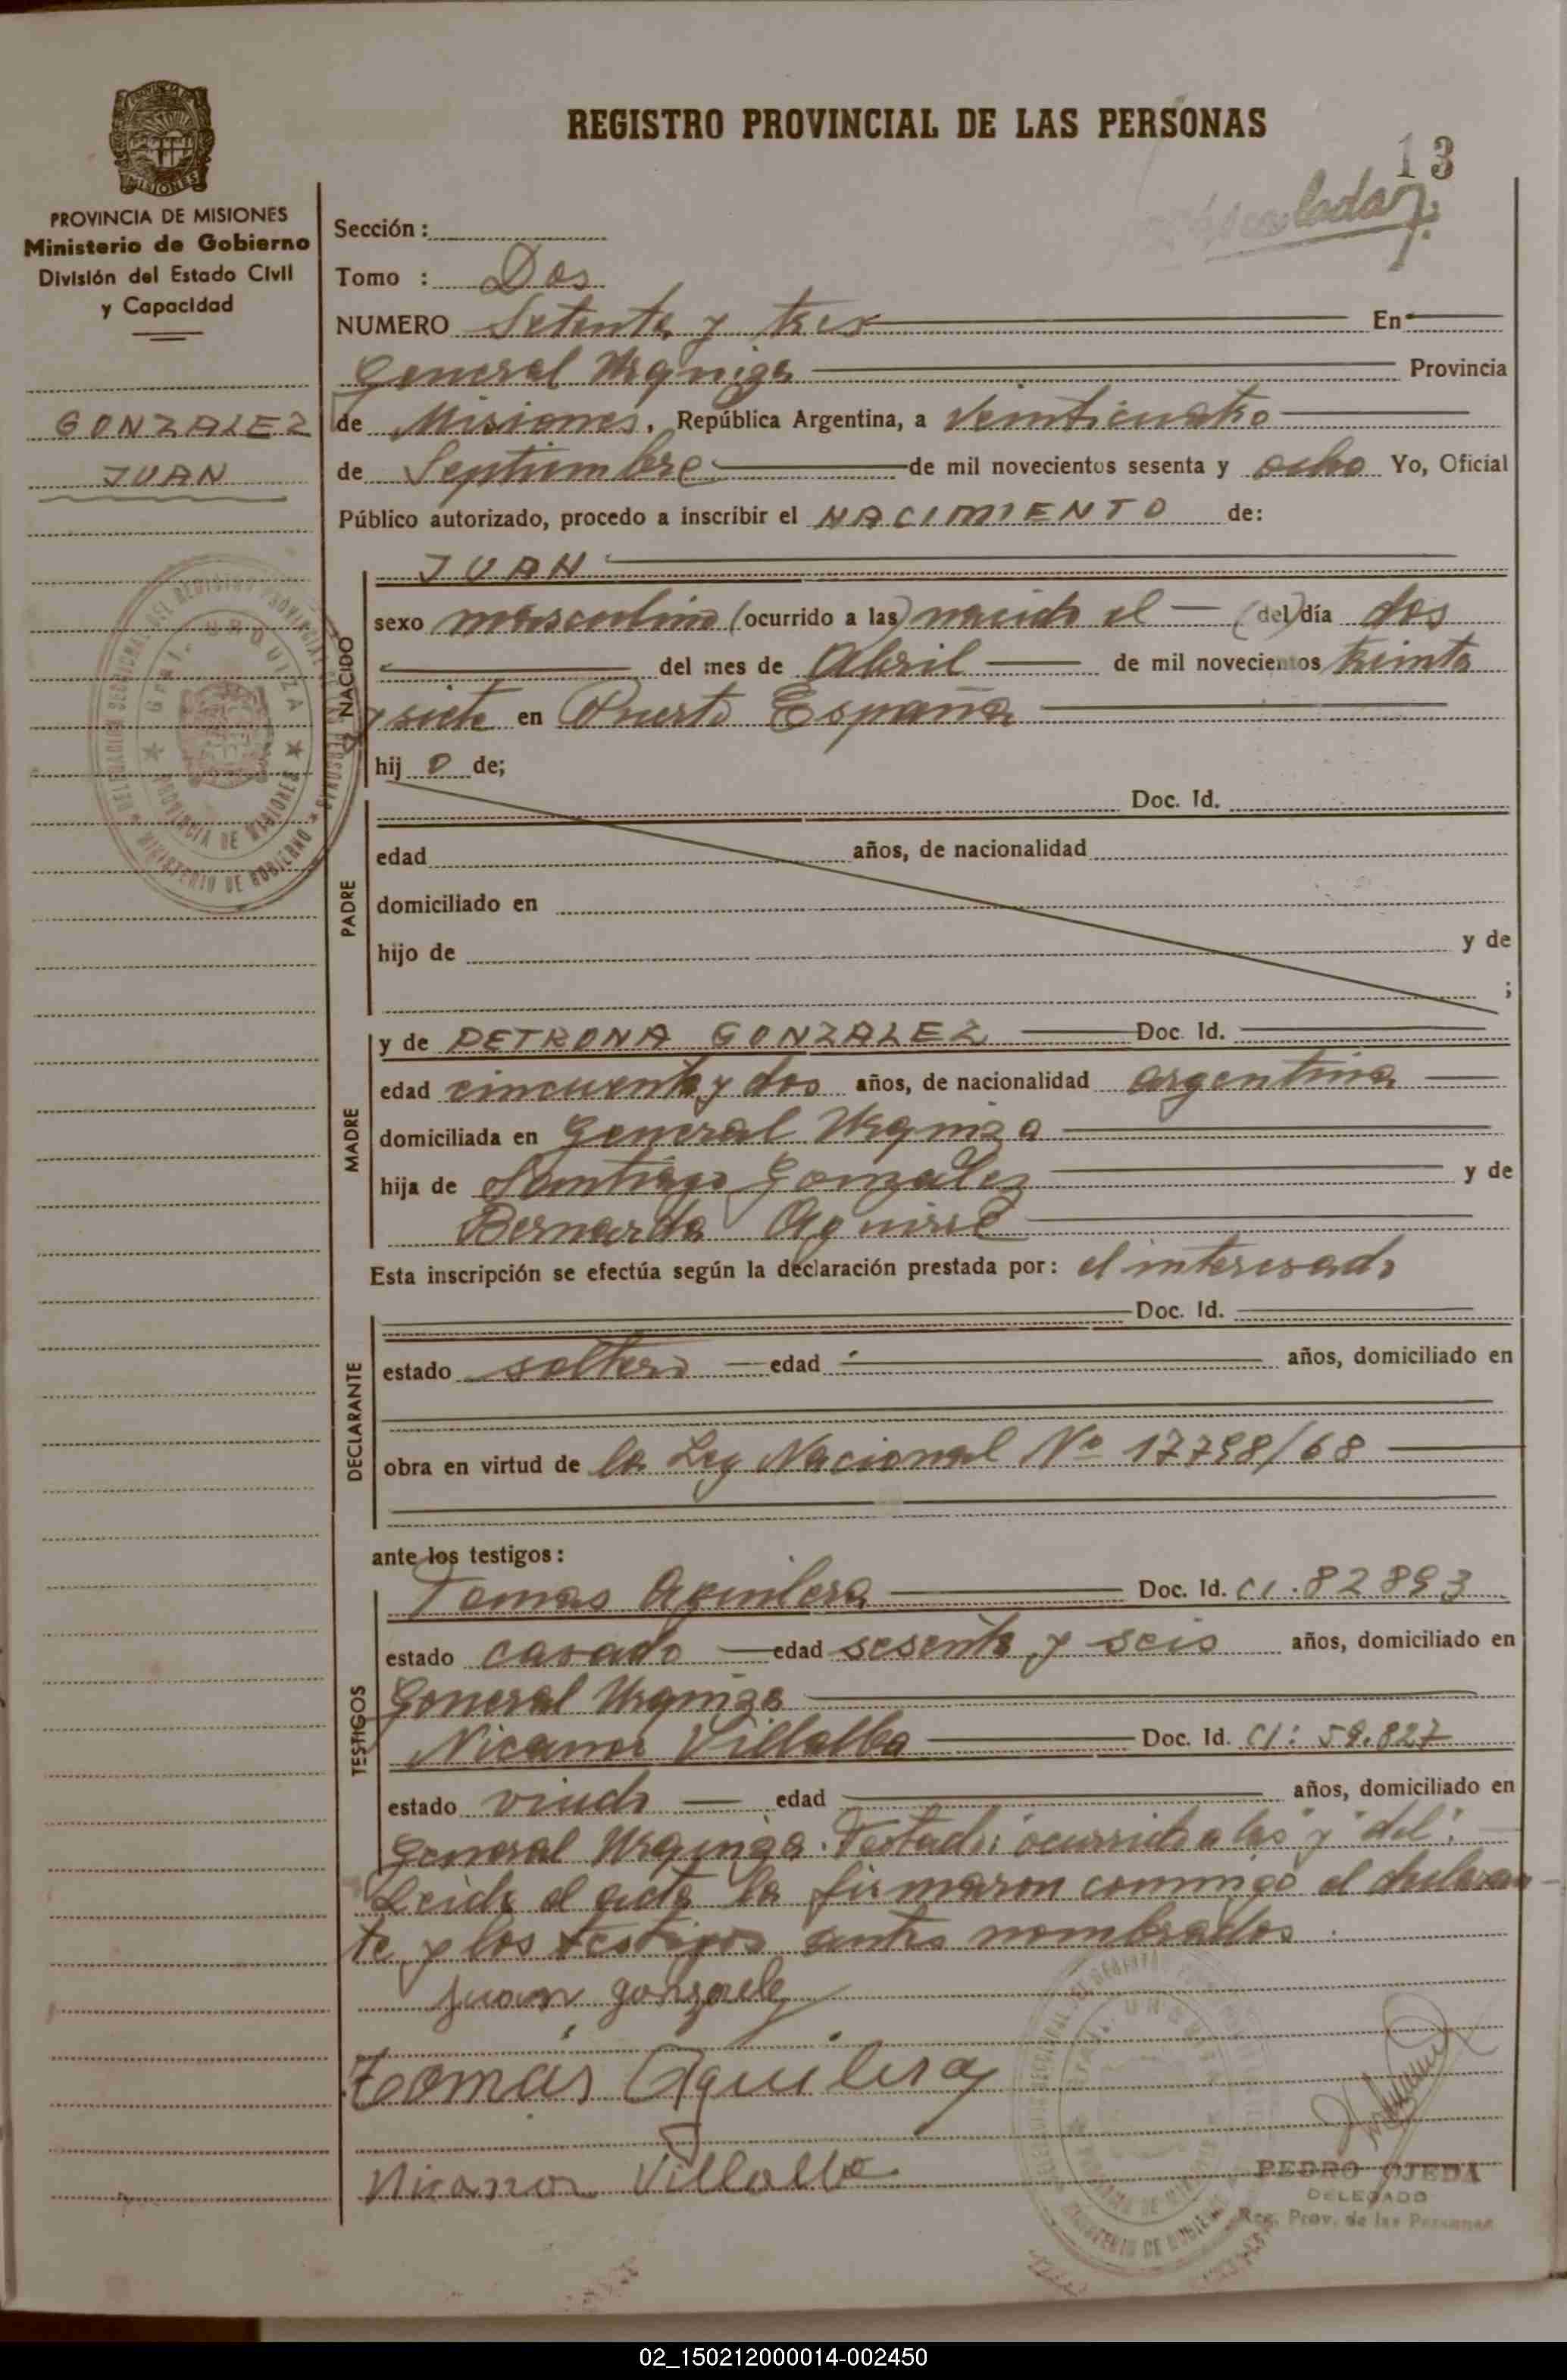 REGISTRO PROVINCIAL DE LAS PERSONAS
13
MISIONES
PROVINCIA DE MISIONES
Ministerio de Gobierno
División del Estado Civil
y Capacidad
GONZALEZ
JUAN
Sección:
Tomo : Dos
NUMERO Setenta y tres En
General Urquiza Provincia
de Misiones, República Argentina, a veinticuatro
de Septiembre de mil novecientos sesenta y ocho Yo, Oficial
Público autorizado, procedo a inscribir el NACIMIENTO de:
NACIDO
JUAN
sexo masculino (ocurrido a las) nacido el (del) día dos
del mes de Abril de mil novecientos treinta
y siete en Puerto España
hij o de;
PADRE
Doc. Id.
edad años, de nacionalidad
domiciliado en
hijo de y de
;
MADRE
y de PETRONA GONZALEZ Doc. Id.
edad cincuenta y dos años, de nacionalidad argentina
domiciliada en General Urquiza
hija de Santiago Gonzalez y de
Bernarda Aguirre
Esta inscripción se efectúa según la declaración prestada por: el interesado
DECLARANTE
Doc. Id.
estado soltero edad años, domiciliado en
obra en virtud de la Ley Nacional Nº 17798/68
ante los testigos:
TESTIGOS
Tomas Aguilera Doc. Id. CI. 82893
estado casado edad sesenta y seis años, domiciliado en
General Urquiza
Nicanor Villalba Doc. Id. CI: 59.827
estado viudo edad años, domiciliado en
General Urquiza. Testado: "ocurrido a las" y "del".
Leida el acta la firmaron conmigo el declaran
te y los testigos antes nombrados.
Juan Gonzalez
Tomás Aguilera
Nicanor Villalba
PEDRO OJEDA
DELEGADO
Reg. Prov. de las Personas
02_150212000014-002450